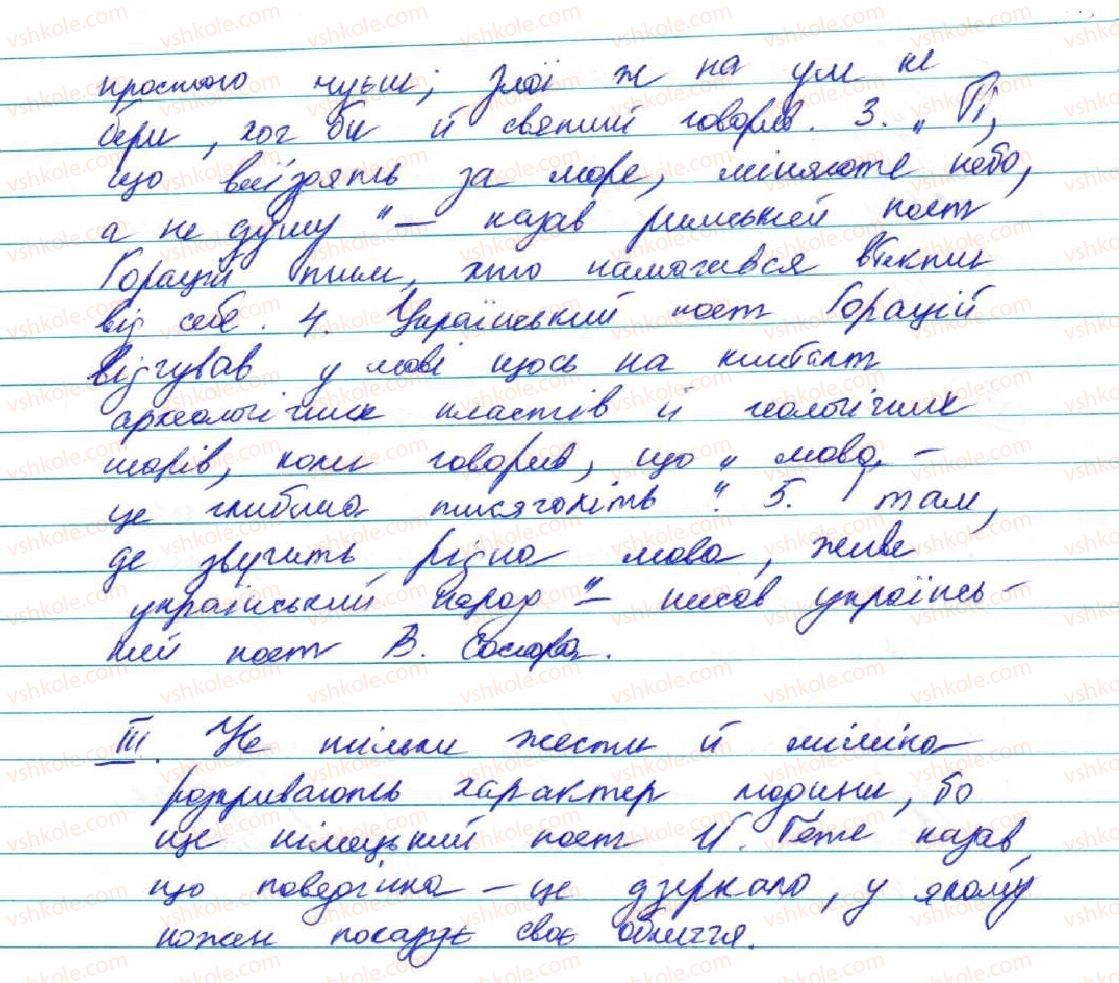 простого чуєш; Злої ж на ум не
бери, хоч би й святий говорив. 3. „Ті,
що виїздять за море, міняють небо,
а не душу" — казав римський поет
Горацій тим, хто намагався втікти
від себе. 4. Український поет Горацій
відчував у мові щось на кшталт
археологічних пластів й геологічних
шарів, коли говорив, що „мова –
це глибина тисячоліть". 5. „Там,
де звучить рідна мова, живе
український народ" — писав українсь-
кий поет В. Сосюра.
III. Не тільки жести й міміка
розкривають характер людини, бо
ще німецький поет Й. Гете казав,
що поведінка – це дзеркало, у якому
кожен показує своє обличчя.